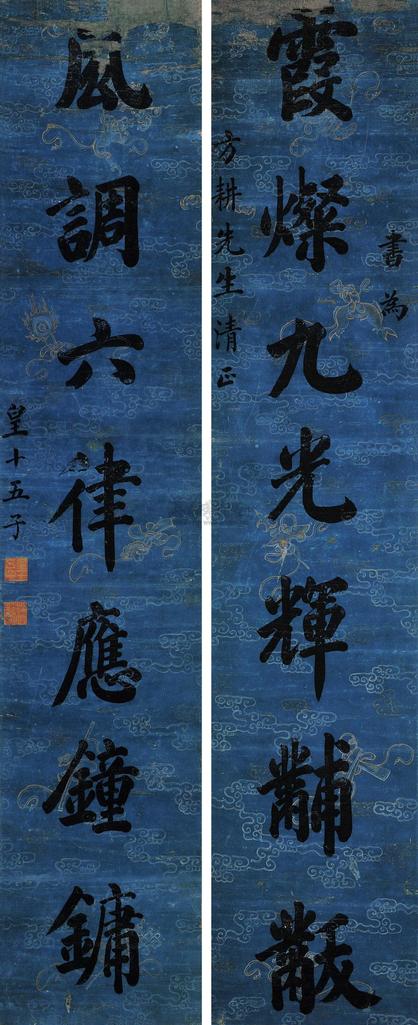 書為
霞燦九光輝黼黻
方耕先生清正
風調六律應鐘鏞
皇十五子